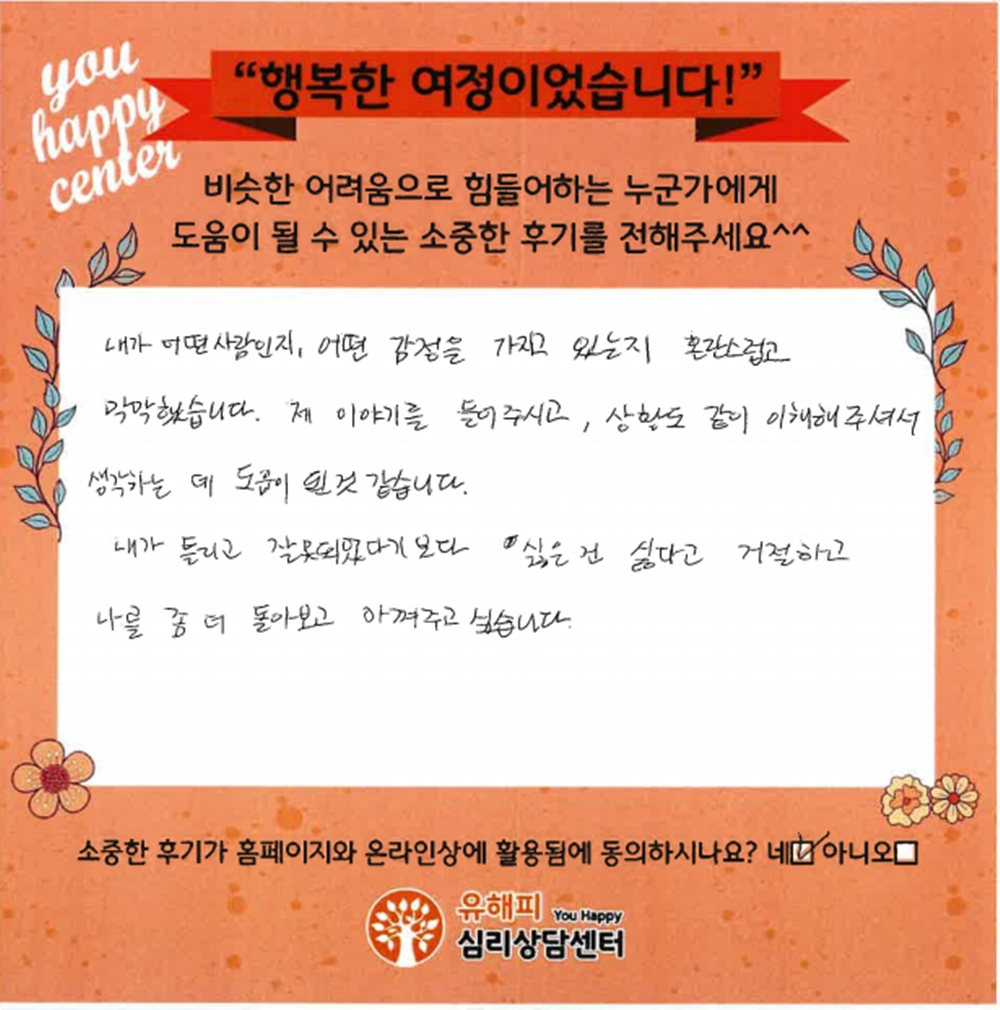 you
happy
center
“행복한 여정이었습니다!”
비슷한 어려움으로 힘들어하는 누군가에게
도움이 될 수 있는 소중한 후기를 전해주세요^^
내가 어떤사람인지, 어떤 감정을 가지고 있는지 혼란스럽고
막막했습니다. 제 이야기를 들어주시고, 상황도 같이 이해해주셔서
생각하는 데 도움이 된것 같습니다.
내가 틀리고 잘못되었다기보다 싫은건 싫다고 거절하고
나를 좀 더 돌아보고 아껴주고 싶습니다.
소중한 후기가 홈페이지와 온라인상에 활용됨에 동의하시나요? 네☑ 아니오☐
유해피 You Happy
심리상담센터